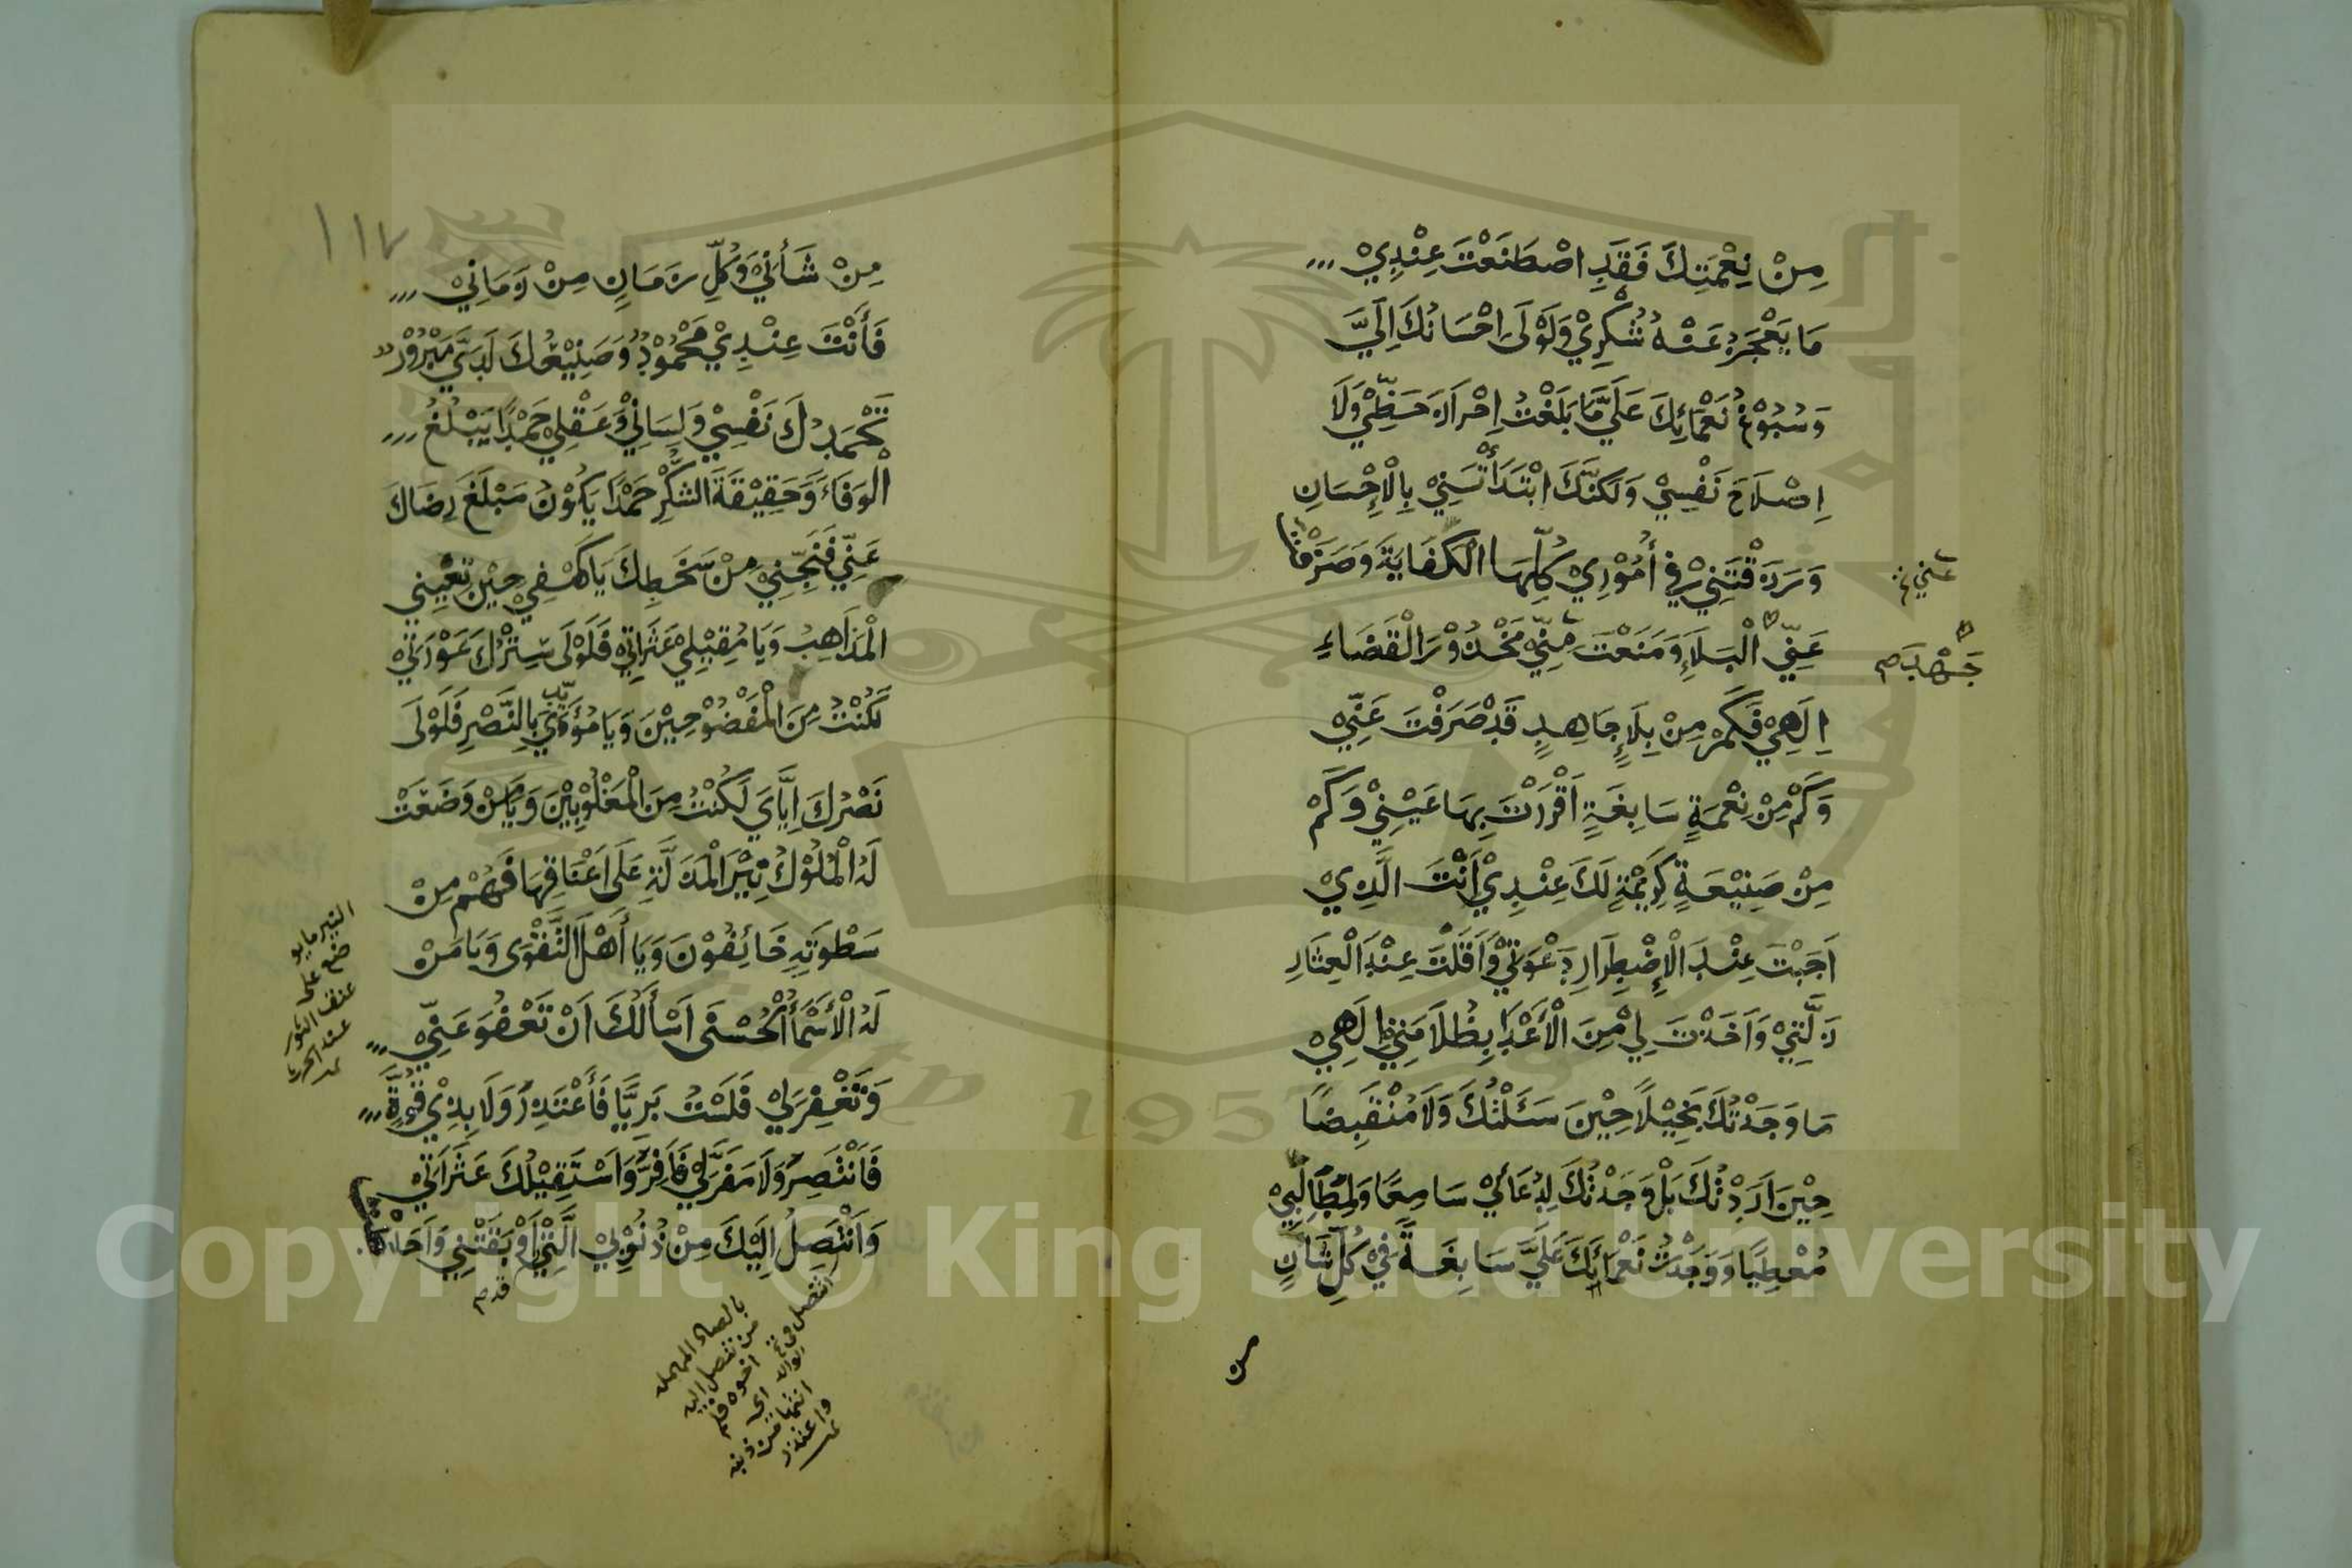 مِنْ نِعْمَتِكَ فَقَدِ اصْطَنَعْتَ عِنْدِيْ
مَا يَعْجَزُ عَنْهُ شُكْرِيْ وَلَوْلَى اِحْسَانُكَ اِلَيَّ
وَسُبُوْغُ نَعْمَائِكَ عَلَيَّ مَا بَلَغْتُ اِحْرَازَ حَظِّيْ وَلَا
اِصْلَاحَ نَفْسِيْ وَلَكِنَّكَ ابْتَدَأْتَنِيْ بِالْاِحْسَانِ
وَرَزَقْتَنِيْ فِي أُمُوْرِيْ كُلِّهَا الْكِفَايَةَ وَصَرَفْتَ
عَنِّي الْبَلَاءِ وَمَنَعْتَ مِنِّيْ مَحْذُوْرَ الْقَضَاءِ
اِلَهِيْ فَكَمْ مِنْ بَلَاءٍ جَاهِدٍ قَدْ صَرَفْتَ عَنِّيْ
وَكَمْ مِنْ نِعْمَةٍ سَابِغَةٍ اَقْرَرْتَ بِهَا عَيْنِيْ وَكَمْ
مِنْ صَنِيْعَةٍ كَرِيْمَةٍ لَكَ عِنْدِيْ اَنْتَ الَّذِيْ
اَجَبْتَ عِنْدَ الْاِضْطِرَارِ دَعْوَتِيْ وَاَقَلْتَ عِنْدَ الْعِثَارِ
زَلَّتِيْ وَاَخَذْتَ لِيْ مِنَ الْأَعْدَاءِ بِظُلَامَتِيْ اِلَهِيْ
مَا وَجَدْتُكَ بَخِيْلًا حِيْنَ سَئَلْتُكَ وَلَا مُنْقَبِضًا
حِيْنَ اَرَدْتُكَ بَلْ وَجَدْتُكَ لِدُعَائِيْ سَامِعًا وَلِمَطَالِبِيْ
مُعْطِيًا وَوَجَدْتُ نَعْمَائَكَ عَلَيَّ سَابِغَةً فِيْ كُلِّ شَانٍ
عني خ
جهد م
من
١١٧
مِنْ شَأْنِيْ وَكُلِّ زَمَانٍ مِنْ زَمَانِيْ
فَأَنْتَ عِنْدِيْ مَحْمُوْدٌ وَصَنِيْعُكَ لَدَيَّ مَبْرُوْرٌ
تَحْمَدُكَ نَفْسِيْ وَلِسَانِيْ وَعَقْلِيْ حَمْدًا يَبْلُغُ
الْوَفَاءَ وَحَقِيْقَةَ الشُّكْرِ حَمْدًا يَكُوْنُ مَبْلَغَ رِضَاكَ
عَنِّيْ فَنَجِّنِيْ مِنْ سَخَطِكَ يَا كَهْفِيْ حِيْنَ تُعْيِيْنِي
الْمَذَاهِبُ وَيَا مُقِيْلِيْ عَثَرَاتِيْ فَلَوْلَى سِتْرُكَ عَوْرَتِيْ
لَكُنْتُ مِنَ الْمَفْضُوْحِيْنَ وَيَا مُؤَيِّدِيْ بِالنَّصْرِ فَلَوْلَى
نَصْرُكَ اِيَّايَ لَكُنْتُ مِنَ الْمَغْلُوْبِيْنَ وَيَا مَنْ وَضَعَتْ
لَهُ الْمُلُوْكُ نِيْرَ الْمَذَلَّةِ عَلَى اَعْنَاقِهَا فَهُمْ مِنْ
سَطْوَتِهِ خَائِفُوْنَ وَيَا أَهْلَ التَّقْوَى وَيَا مَنْ
لَهُ الْأَسْمَاءُ الْحُسْنَى اَسْأَلُكَ اَنْ تَعْفُوَ عَنِّيْ
وَتَغْفِرَ لِيْ فَلَسْتُ بَرِيًّا فَأَعْتَذِرُ وَلَا بِذِيْ قُوَّةٍ
فَاَنْتَصِرُ وَلَا مَفَرَّ لِيْ فَاَفِرُّ وَاَسْتَقِيْلُكَ عَثَرَاتِيْ
وَاَنْتَصِلُ اِلَيْكَ مِنْ ذُنُوْبِيْ الَّتِيْ اَوْبَقَتْنِيْ وَاَحَاطَتْ
قد م
النير ما يو
ضع على
عنق الثور
عند الحرث
بالصاد المهملة
من تنصل اليه
اخوه فلم
اي
انتفا من ذنبه
واعتذر
Copyright © King Saud University
1957